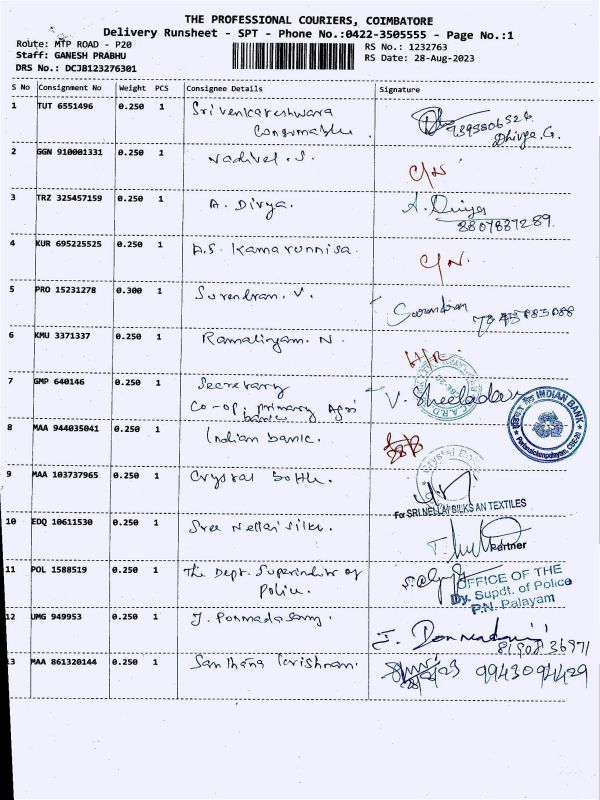 THE PROFESSIONAL COURIERS, COIMBATORE
Delivery Runsheet - SPT - Phone No.:0422-3505555 - Page No.:1
Route: MTP ROAD - P20
RS No.: 1232763
Staff: GANESH PRABHU
RS Date: 28-Aug-2023
DRS No.: DCJB123276301
S No Consignment No Weight PCS Consignee Details Signature
1 TUT 6551496 0.250 1 Sri Venkateshwara
Consumables. 9395806526
Dhivya.G.
2 GGN 910001331 0.250 1 Vadivel.S. C/N.
3 TRZ 325457159 0.250 1 A. Divya. A. Divya
8807887289.
4 KUR 695225525 0.250 1 A.S. Kamarunnisa. C/N.
5 PRO 15231278 0.300 1 Surendran. V. Surendran
6 KMU 3371337 0.250 1 Ramalingam. N
7 GMP 640146 0.250 1 Secretary V. Sheeladevi
Co-op; primary Agri
bank
INDIAN BANK
8 MAA 944035041 0.250 1 Indian bank.
9 MAA 103737965 0.250 1 Crystal bottle.
For SRI NELLAI SILKS AN TEXTILES
10 EDQ 10611530 0.250 1 Sree Nellai Silks.
Partner
11 POL 1588519 0.250 1 The Dept. Superindent of
Police.
OFFICE OF THE
Dy. Supdt. of Police
P.N. Palayam
12 UMG 949953 0.250 1 J. Ponmadasamy. J.
8190836971
13 MAA 861320144 0.250 1 Santhana Krishnan. 9943094429